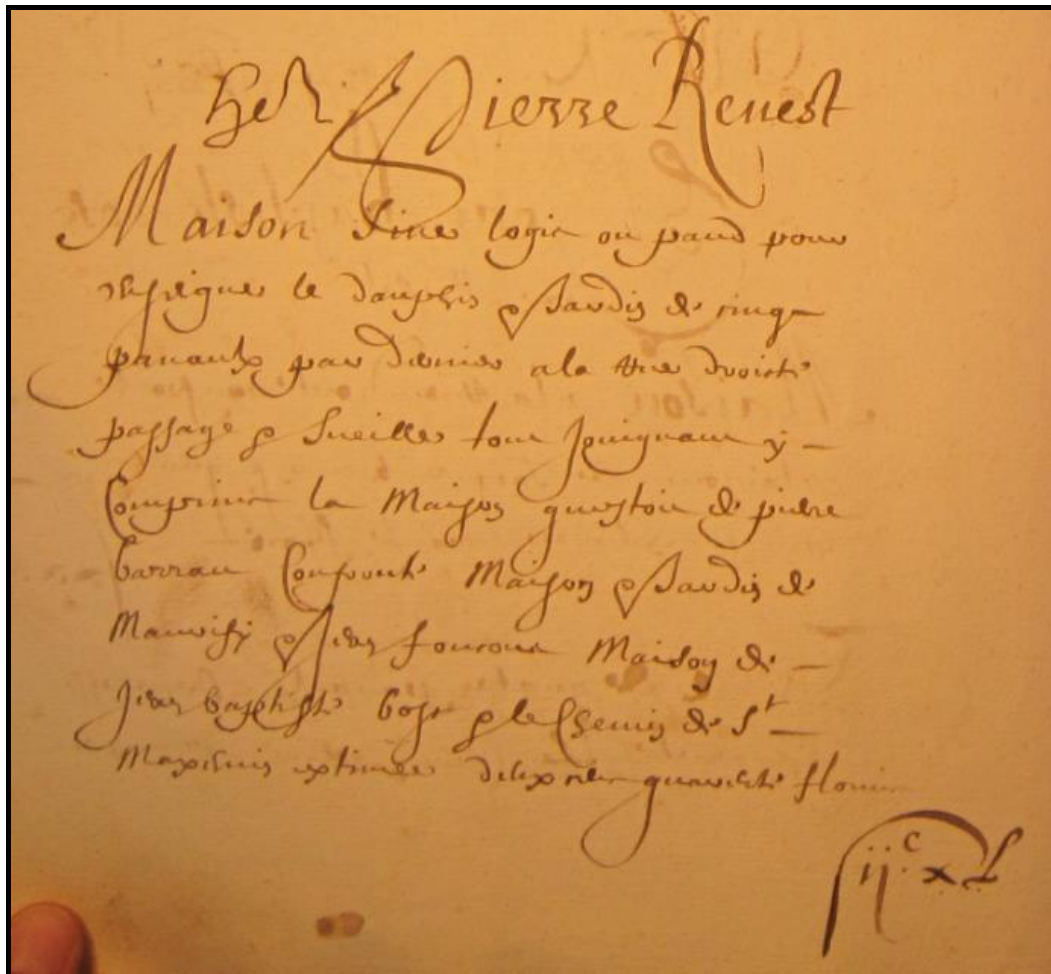 Pierre Revest
Maison sive logis ou pand pour
enseigne le dauphin & Jardin de cinq
panaulx par darrier a la rue droicte
passage & sueilhe tout joignant y
Comprins la Maison questoit de pierre
barrau Confronte Maison & Jardin de
& Jean fourous Maison de
Jean baptiste bosc & le Chemin de St
Maximin extimee deux cens quarante florins
ijc xL